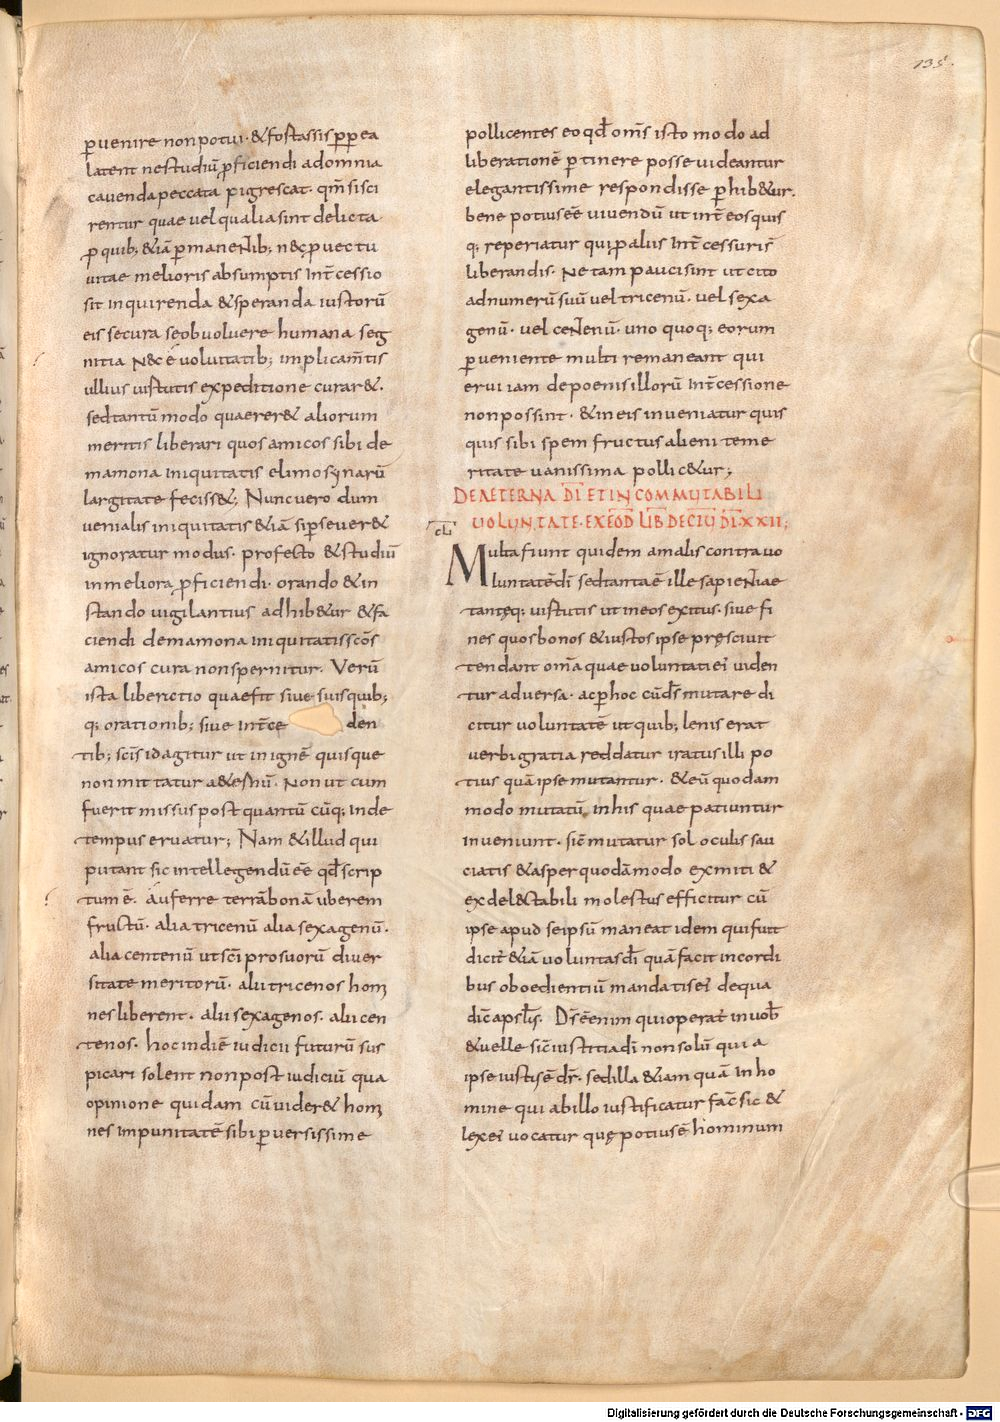 135.
ꝑuenire nonpotui· &fortassisꝓpea
latent nestudiū ꝓficiendi adomnia
cauenda peccata pigrescat· qm̄ sisci
rentur quae uel qualia sint delicta
ꝓ quib; &iā ꝑmanentib; necꝓuectu
uitae melioris absumptis int̄cessio
sit inquirenda &speranda iustorū
eis secura se obuoluere humana seg
nitia nec é uoluptatib; implicam̄tis
ullius uirtutis expeditione curar&·
sed tantū modo quaerer& aliorum
meritis liberari quos amicos sibi de
mamona iniquitatis elimosynarū
largitate feciss&; Nunc uero dum
uenialis iniquitatis &iā siꝑseuer&
ignoratur modus· profecto &studiū
in meliora ꝓficiendi· orando &in
stando uigilantius adhib&ur &fa
ciendi demamona iniquitatis scōs
amicos cura non spernitur· Verū
ista liberatio quae fit siue suis quib;
q; orationib; siue int̄ce den
tib; scīs id agitur ut in ignē quisque
non mittatur a&ernū· Non ut cum
fuerit missus post quantū cūq; inde
tempus eruatur; Nam &illud qui
putant sic intellegendū eē qd̄ scrip
tum ē· Auferre terrā bonā uberem
fructū· alia tricenū alia sexagenū·
alia centenū ut scī pro suorū diuer
sitate meritorū· alii tricenos homi
nes liberent· alii sexagenos· alii cen
tenos· hoc in diē iudicii futurū sus
picari solent non post iudiciū qua
opinione quidam cū uider& homi
nes impunitatē sibi ꝑuersissime
pollicentes eo qd̄ om̄s isto modo ad
liberationē ꝑtinere posse uideantur
elegantissime respondisse ꝑhib&ur·
bene potius eē uiuendū ut int̄ eos quis
q; reperiatur qui ꝓ aliis int̄cessuris
liberandis· Ne tam pauci sint ut cito
ad numerū suū uel tricenū· uel sexa
genū· uel centenū· uno quoq; eorum
ꝑueniente multi remaneant qui
erui iam de poenis illorū int̄cessione
non possint· &in eis inueniatur quis
quis sibi spem fructus alieni teme
ritate uanissima pollic&ur;
DE AETERNA DĪ ET INCOMMUTABILI
UOLUNTATE· EX EOD̄ LIB̄ DE CIŪ DĪ· XXII;
cli
Multa fiunt quidem a malis contra uo
luntatē dī sed tanta ē ille sapientiae
tantęq; uirtutis ut in eos exitus· siue fi
nes quos bonos &iustos ipse pręsciuit
tendant om̄a quae uoluntati ei' uiden
tur aduersa· ac ꝑ hoc cū d̄s mutare di
citur uoluntatē ut quib; lenis erat
uerbi gratia reddatur iratus illi po
tius quā ipse mutantur· &eū quodam
modo mutatū in his quae patiuntur
inueniunt· sic̄ mutatur sol oculis sau
ciatis &asper quodā modo ex miti &
ex del&tabili molestus efficitur cū
ipse apud se ipsū maneat idem qui fuit
dicit̄ &iā uoluntas dī quā facit in cordi
bus oboedientiū mandatis ei' de qua
dic̄ apsl̄s· D̄s ē enim qui operat̄ in uob̄
&uelle sic̄ iustitia dī non solū qui a
ipse iustis ē dr̄· sed illa &iam quā in ho
mine qui ab illo iustificatur fac̄ sic &
lex ei' uocatur quę potius ē hominum
Digitalisierung gefördert durch die Deutsche Forschungsgemeinschaft - DFG